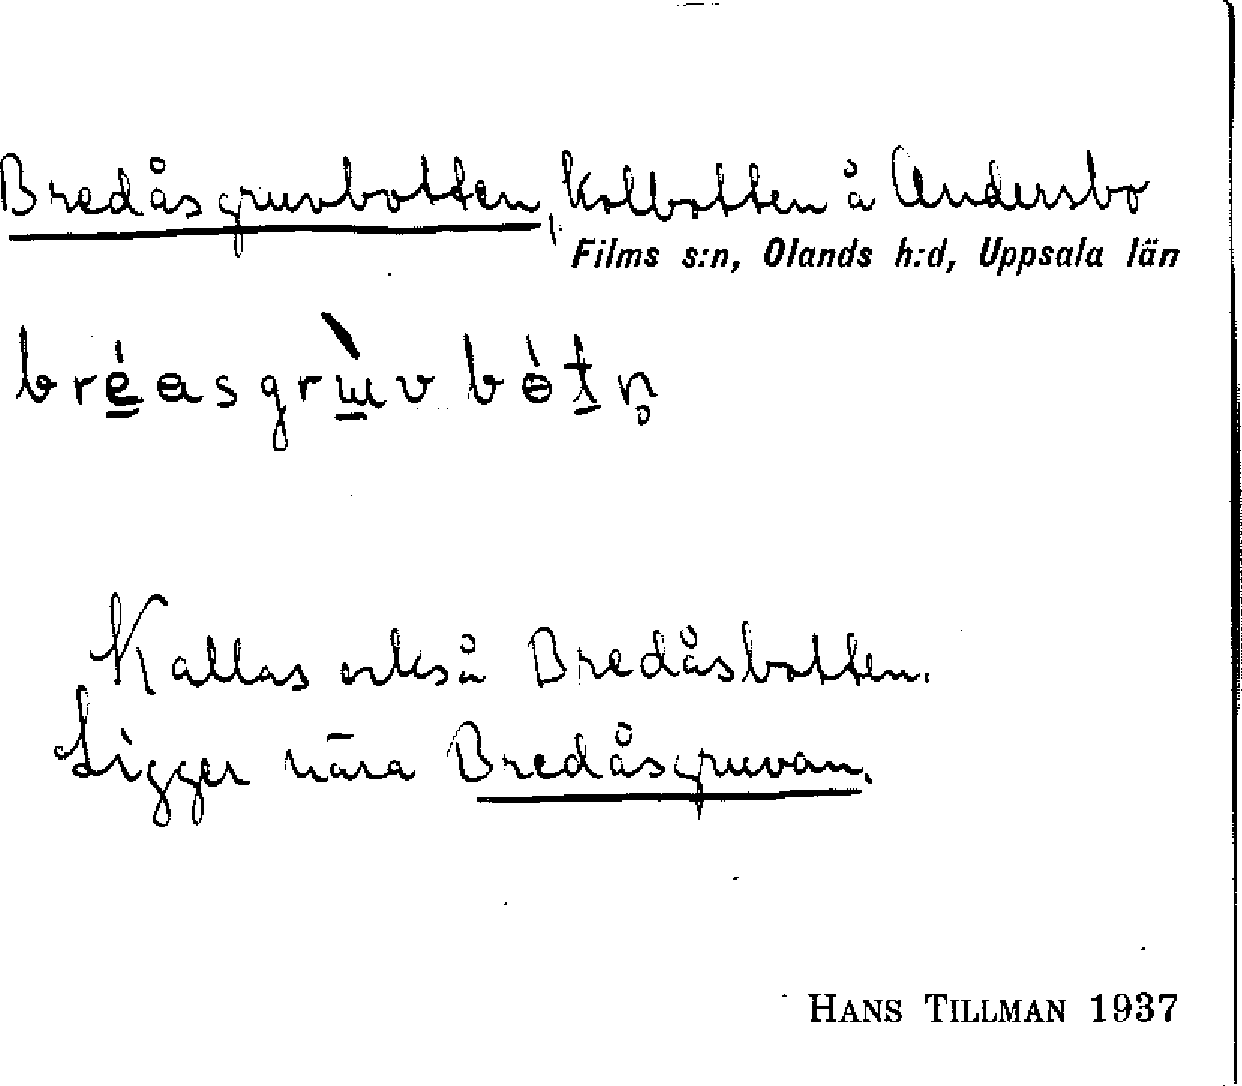 Bredåsgruvbotten, kolbotten å Andersbo
Films s:n, Olands h:d, Uppsala län
Kallas också Bredåsbotten.
Ligger nära Bredåsgruvan.
HANS TILLMAN 1937